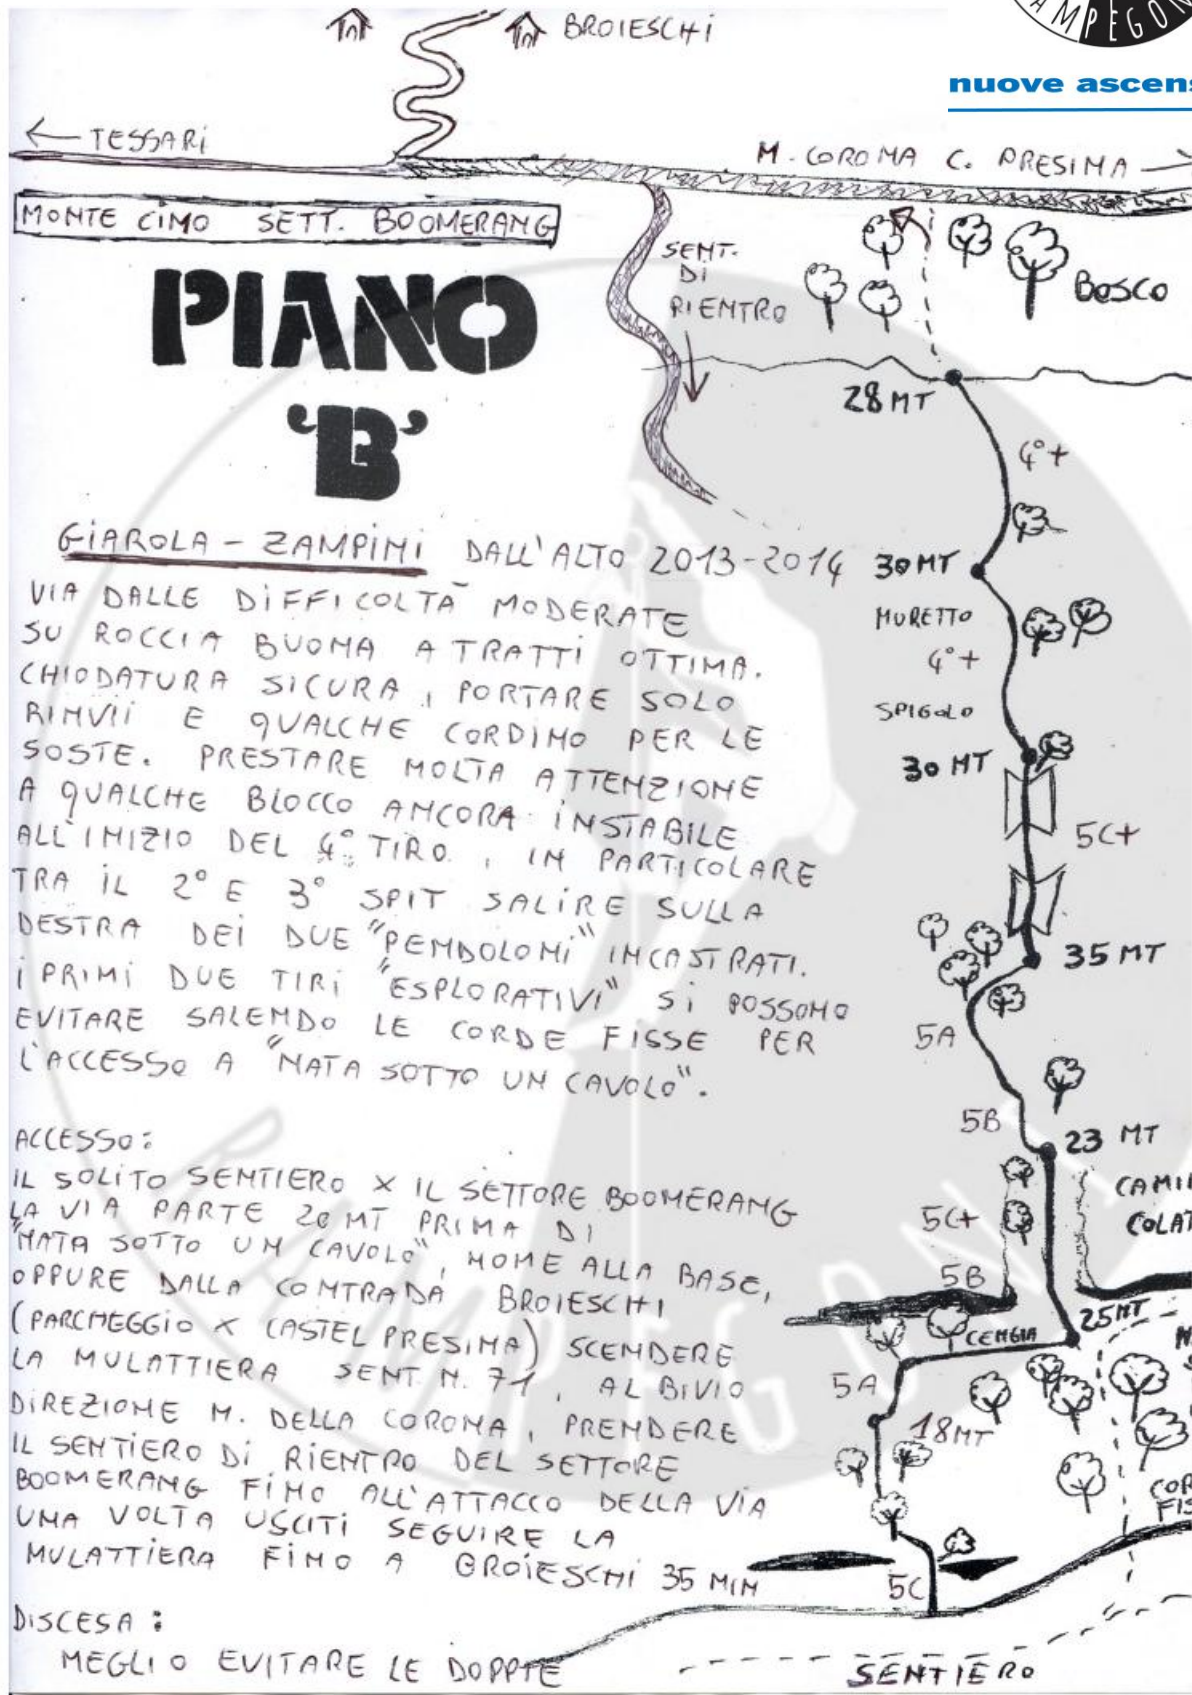 BROIESCHI
AMPEGON
nuove ascens
← TESSARI
M. CORONA C. PRESINA →
MONTE CIMO SETT. BOOMERANG
SENT.
DI
RIENTRO
BOSCO
PIANO
'B'
28 MT
4°+
GIAROLA - ZAMPINI DALL'ALTO 2013-2014
30 MT
VIA DALLE DIFFICOLTÀ MODERATE
SU ROCCIA BUONA A TRATTI OTTIMA.
CHIODATURA SICURA, PORTARE SOLO
RINVII E QUALCHE CORDINO PER LE
SOSTE. PRESTARE MOLTA ATTENZIONE
A QUALCHE BLOCCO ANCORA INSTABILE
ALL'INIZIO DEL 4° TIRO, IN PARTICOLARE
TRA IL 2° E 3° SPIT SALIRE SULLA
DESTRA DEI DUE "PENDOLONI" INCASTRATI.
I PRIMI DUE TIRI "ESPLORATIVI" SI POSSONO
EVITARE SALENDO LE CORDE FISSE PER
L'ACCESSO A "NATA SOTTO UN CAVOLO".
MURETTO
4°+
SPIGOLO
30 MT
5C+
35 MT
5A
5B
23 MT
ACCESSO:
IL SOLITO SENTIERO X IL SETTORE BOOMERANG
LA VIA PARTE 20 MT PRIMA DI
"NATA SOTTO UN CAVOLO", NOME ALLA BASE,
OPPURE DALLA CONTRADA BROIESCHI
(PARCHEGGIO X CASTEL PRESINA) SCENDERE
LA MULATTIERA SENT. N. 71, AL BIVIO
DIREZIONE M. DELLA CORONA, PRENDERE
IL SENTIERO DI RIENTRO DEL SETTORE
BOOMERANG FINO ALL'ATTACCO DELLA VIA
UNA VOLTA USCITI SEGUIRE LA
MULATTIERA FINO A BROIESCHI 35 MIN
CAMI
COLAT
5C+
5B
25 MT
CENGIA
5A
18 MT
COR
FIS
5C
DISCESA:
MEGLIO EVITARE LE DOPPIE
SENTIERO
RAMPEGONI